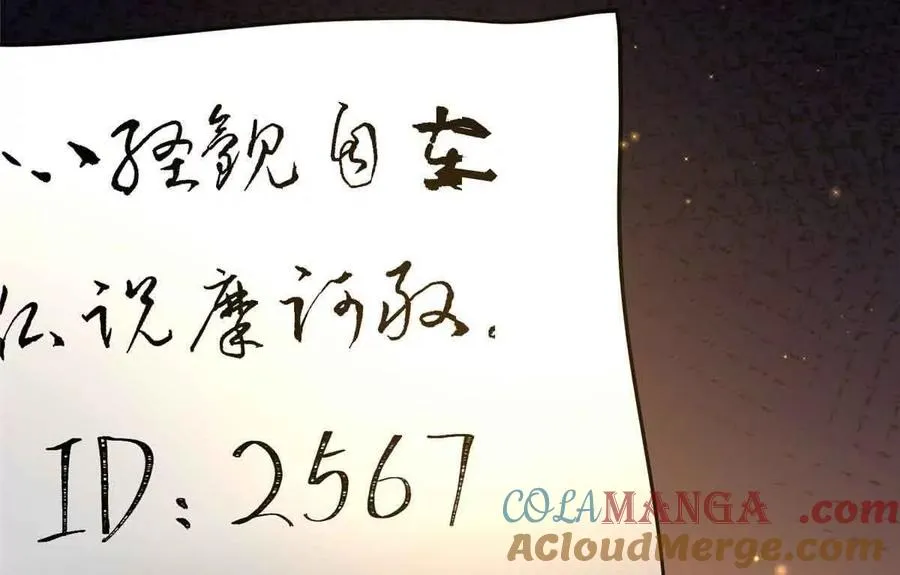 心经觀自在
仏说摩訶般
ID: 2567
COLAMANGA.com
ACloudMerge.com